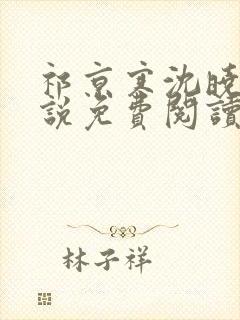 祁京寒沈曉
說免費閱讀
林子祥